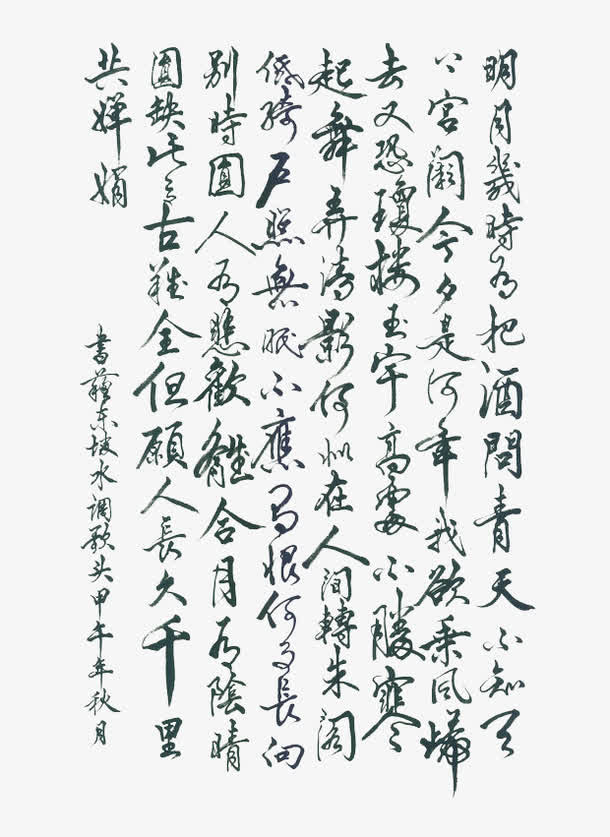 明月幾時有把酒問青天不知天
上宫阙今夕是何年我欲乘风歸
去又恐瓊樓玉宇高處不勝寒
起舞弄清影何似在人间轉朱阁
低绮户照無眠不應有恨何事長向
别時圓人有悲歡離合月有陰晴
圓缺此事古難全但願人長久千里
共嬋娟
書蘇东坡水调歌头甲午年秋月